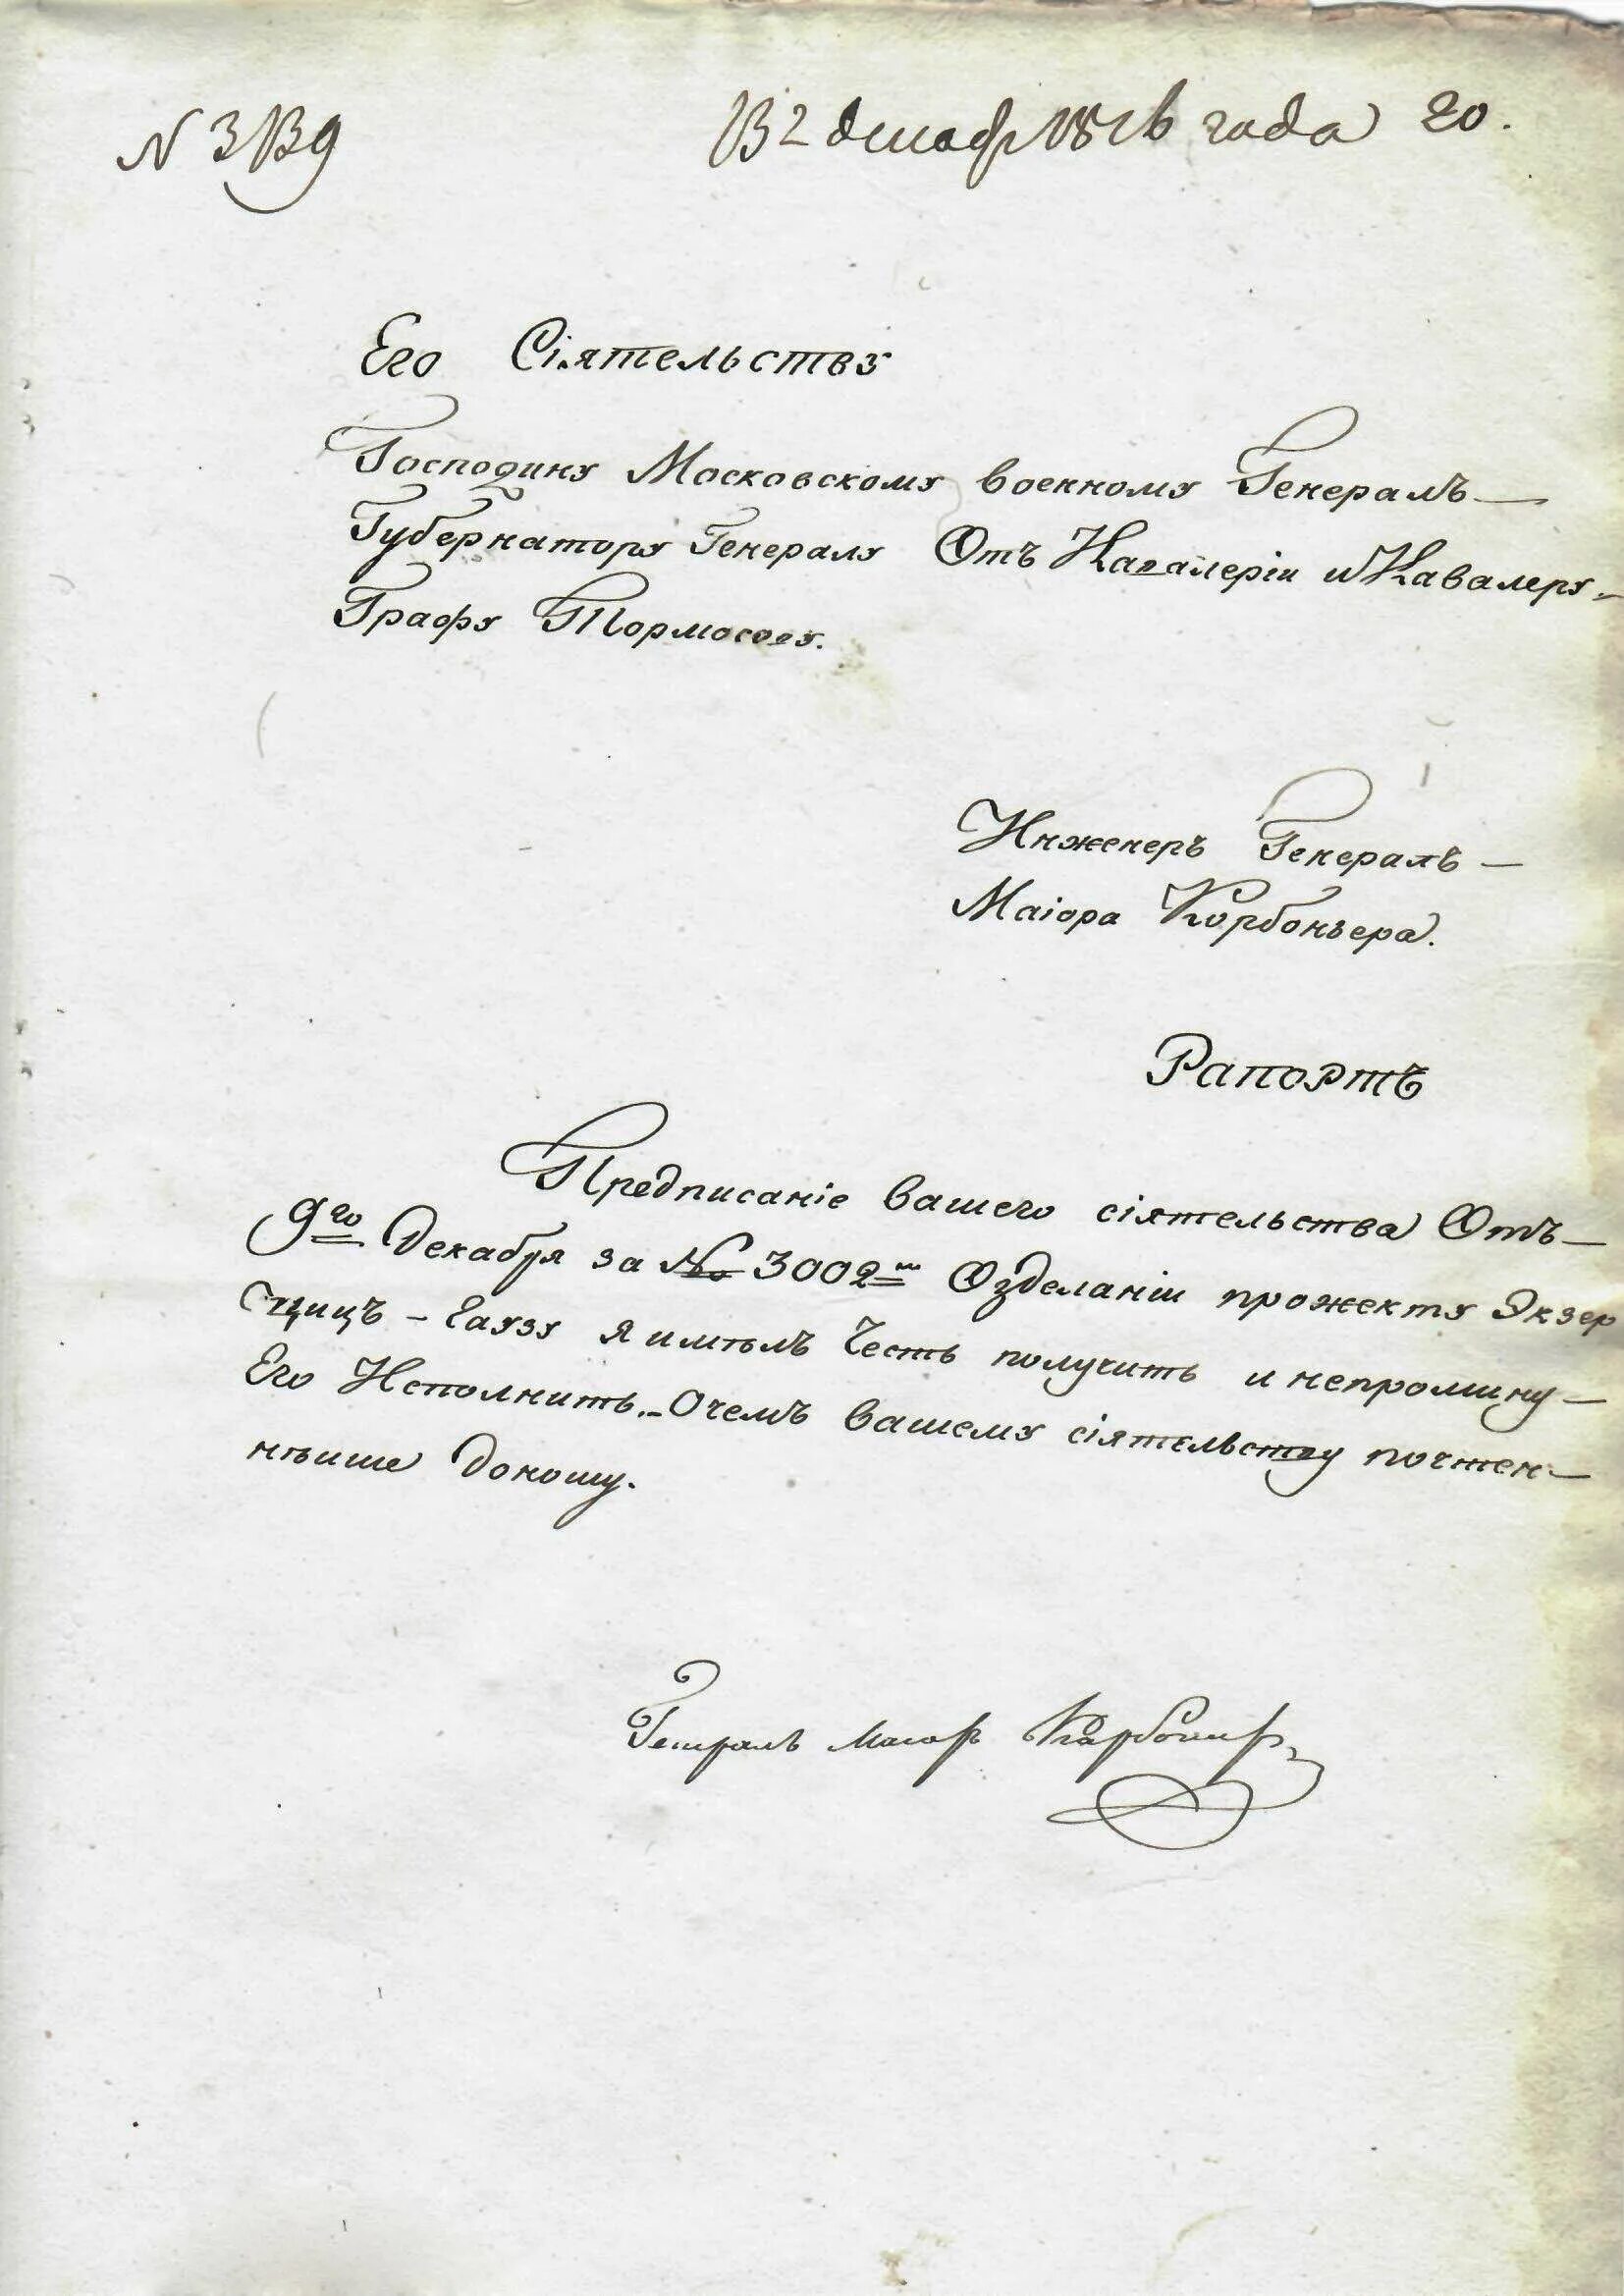 N 3139
12 декабр 1816 года 20.
Его Сіятельству
Господину Московскому военному Генералъ—
Губернатору Генералу Отъ Кавалеріи и Кавалеру
Графу Тормасову.
Инженеръ Генералъ—
Маіора Корбоньера.
Рапортъ
Предписаніе вашего сіятельства Отъ—
9го Декабря за № 3002мъ Озделаніи прожекту Экзер
сциць – Гаузу я имѣлъ Честь получить и непромину—
Его Исполнить.– Очемъ вашему сіятельству почтен—
нѣише доношу.
Генералъ Маіоръ Карбоніеръ